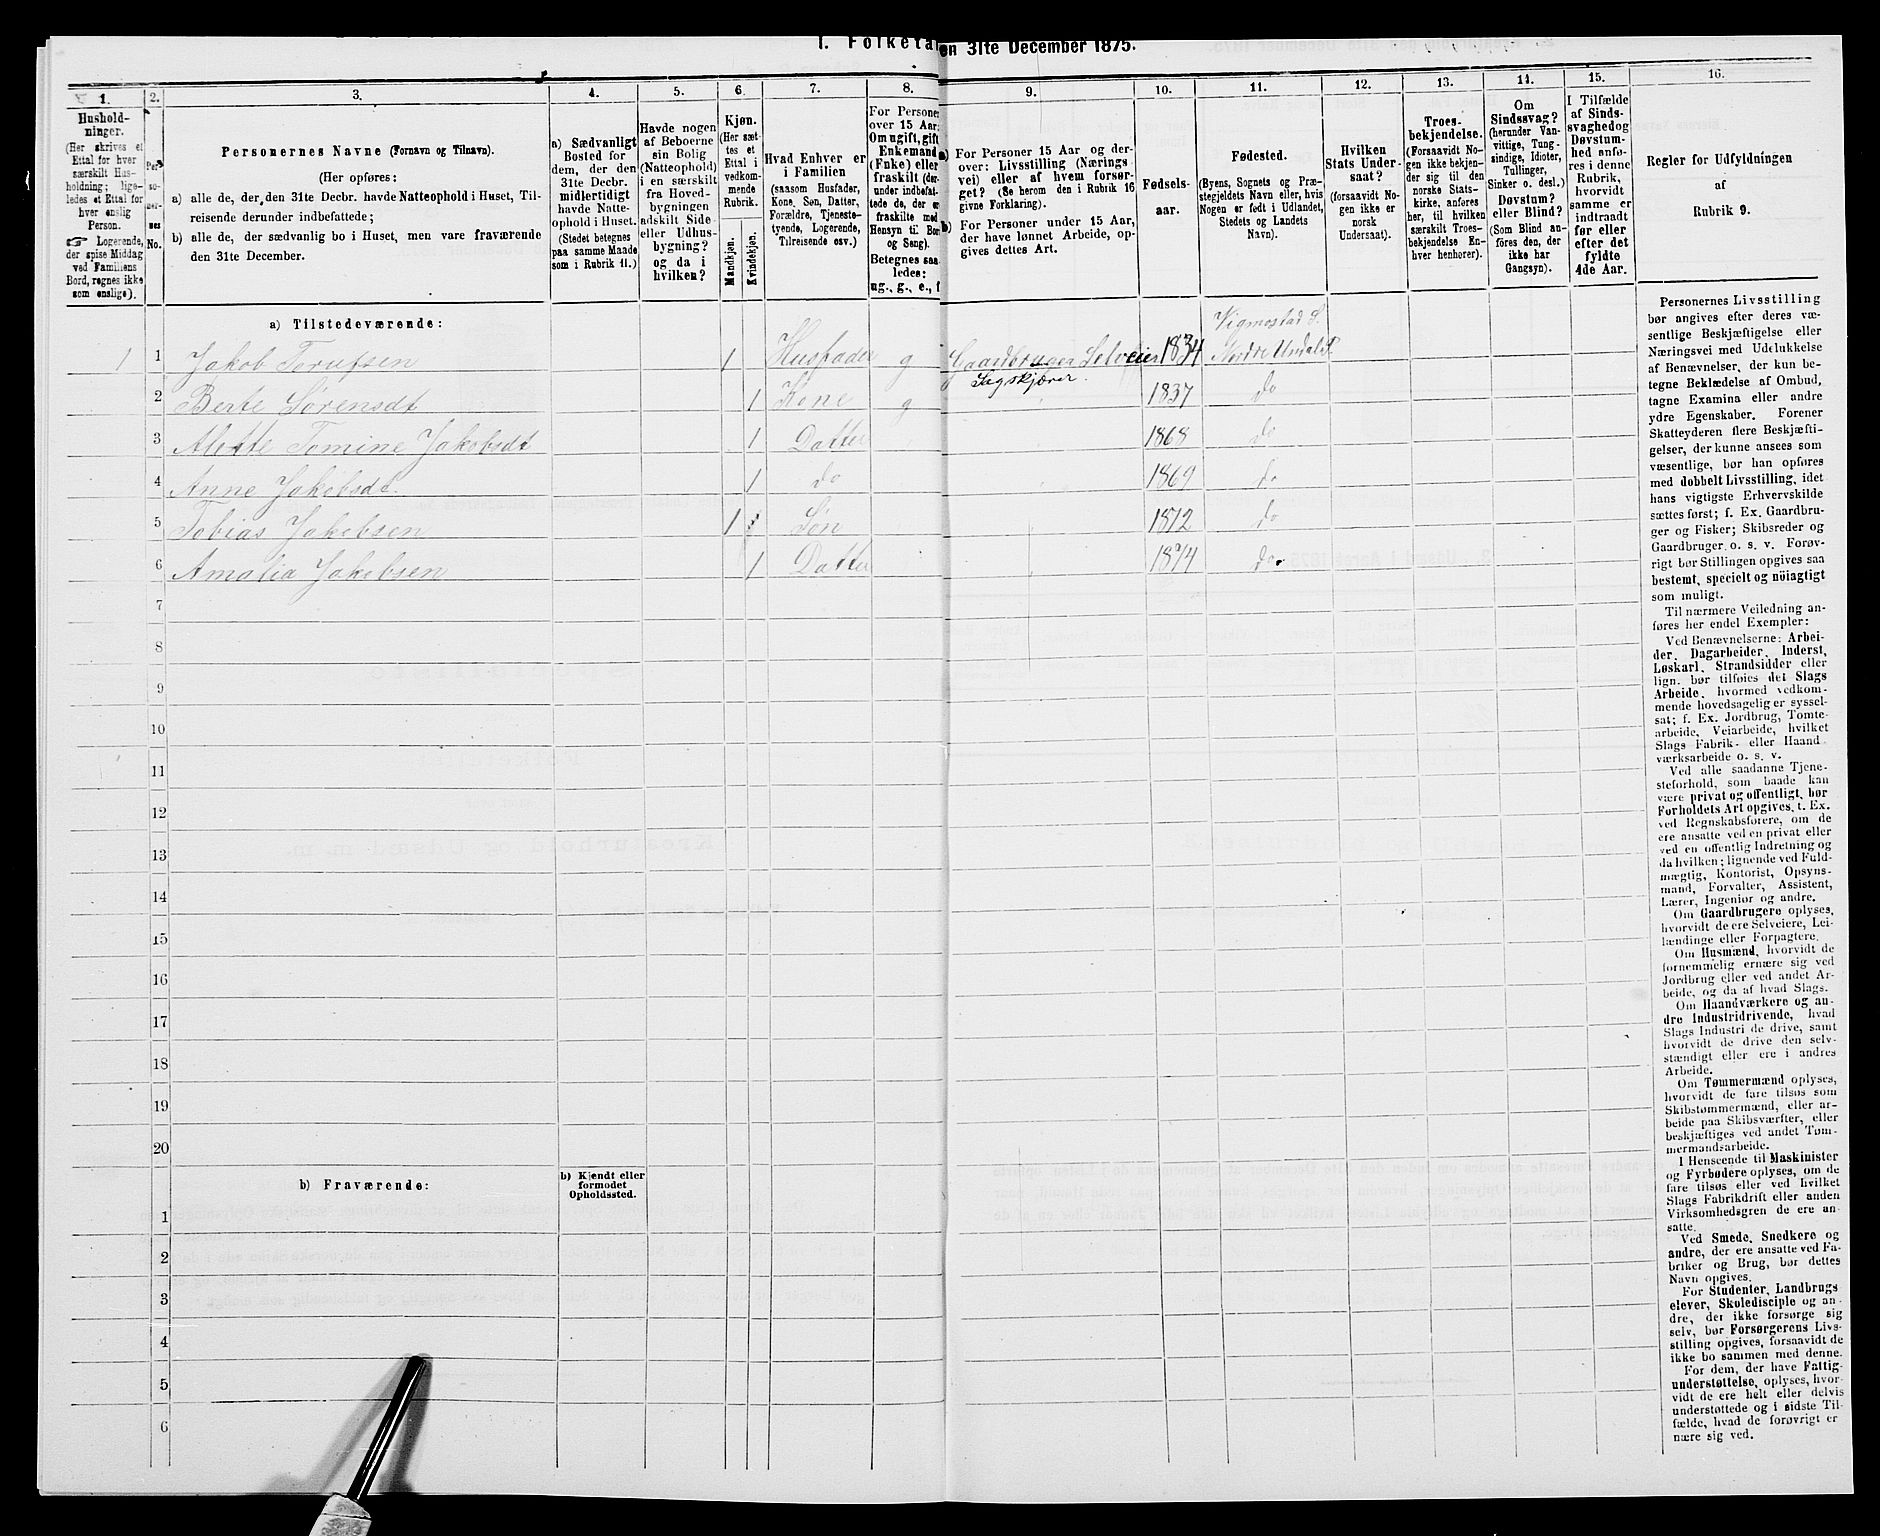 1. Folketæl
en 31te December 1875.
1.
Hushold-
ninger.
(Her skrives et
Ettal for hver
særskilt Hus-
holdning; lige-
ledes et Ettal for
hver enslig
Person.
☞ Logerende,
der spise Middag
ved Familiens
Bord, regnes ikke
som enslige).
2.
Per-
so-
ner-
nes
No.
3.
Personernes Navne (Fornavn og Tilnavn).
(Her opføres:
a) alle de, der den 31te Decbr. havde Natteophold i Huset, Til-
reisende derunder indbefattede;
b) alle de, der sædvanlig bo i Huset, men vare fraværende
den 31te December.
4.
a) Sædvanligt
Bosted for
dem, der den
31te Decbr.
midlertidigt
havde Natte-
ophold i Huset.
(Stedet betegnes
paa samme Maade
som i Rubrik 11.)
5.
Havde nogen
af Beboerne
sin Bolig
(Natteophold)
i en særskilt
fra Hoved-
bygningen
adskilt Side-
eller Udhus-
bygning?
og da i
hvilken?
6.
Kjøn.
(Her sæt-
tes et
Ettal i
vedkom-
mende
Rubrik.
Mandkjøn.
Kvindekjøn.
7.
Hvad Enhver er
i Familien
(saasom Husfader,
Kone, Søn, Datter,
Forældre, Tjeneste-
tyende, Logerende,
Tilreisende osv.)
8.
For Persone
over 15 Aar:
Om ugift, gift
Enkemand
(Enke) eller
fraskilt (der-
under indbefat-
tede de, der er
fraskilte med
Hensyn til Bor
og Seng).
Betegnes saa-
ledes:
ug., g., e., f
9.
a) For Personer 15 Aar og der-
over: Livsstilling (Nærings
vei) eller af hvem forsør-
get? (Se herom den i Rubrik 16
givne Forklaring).
b) For Personer under 15 Aar,
der have lønnet Arbeide, op-
gives dettes Art.
10.
Fødsels-
aar.
11.
Fødested.
(Byens, Sognets og Præ-
stegjeldets Navn eller, hvis
Nogen er født i Udlandet,
Stedets og Landets
Navn).
12.
Hvilken
Stats Under-
saat?
(forsaavidt No-
gen ikke er
norsk
Undersaat).
13.
Troes-
bekjendelse.
(Forsaavidt No-
gen ikke bekjen-
der sig til den
norske Stats-
kirke, anføres
her, til hvilken
særskilt Troes-
bekjendelse En-
hver henhører).
14.
Om
Sindssvag?
(herunder Van-
vittige, Tung-
sindige, Idioter,
Tullinger,
Sinker o. desl.)
Døvstum?
eller Blind?
(Som Blind an-
føres den, der
ikke har
Gangsyn).
15.
I Tilfælde
af Sinds-
svaghed og
Døvstum-
hed anfø-
res i denne
Rubrik,
hvorvidt
samme er
indtraadt
før eller
efter det
fyldte
4de Aar.
16.
Regler for Udfyldningen
af
Rubrik 9.
a) Tilstedeværende:
Vigmostad S.
1 1 Jakob Torufsen 1 Husfader g Gaardbruger Selveier 1834 Nordre Undal P.
Sagskjærer.
2 Berte Sørensdt 1 Kone g 1837 do
3 Alette Tomine Jakobsdt 1 Datter 1868 do
4 Anne Jakobsdt. 1 do 1869 do
5 Tobias Jakobsen 1 Søn 1872 do
6 Amalia Jakobsen 1 Datter 1874 do.
7
8
9
10
11
12
13
14
15
16
17
18
19
20
b) Fraværende:
b) Kjendt eller
formodet
Opholdssted.
1
2
3
4
5
6
Personernes Livsstilling
bør angives efter deres væ-
sentlige Beskjæftigelse eller
Næringsvei med Udelukkelse
af Benævnelser, der kun be-
tegne Beklædelse af Ombud,
tagne Examina eller andre
ydre Egenskaber. Forener
Skatteyderen flere Beskjæfti-
gelser, der kunne ansees som
væsentlige, bør han opføres
med dobbelt Livsstilling, idet
hans vigtigste Erhvervskilde
sættes først; f. Ex. Gaardbru-
ger og Fisker; Skibsreder og
Gaardbruger o. s. v. Forøv-
rigt bør Stillingen opgives saa
bestemt, specielt og nöiagtigt
som muligt.
Til nærmere Veiledning an-
føres her endel Exempler:
Ved Benævnelserne: Arbei-
der, Dagarbeider, Inderst,
Løskarl, Strandsidder eller
lign. bør tilføies det Slags
Arbeide, hvormed vedkom-
mende hovedsagelig er syssel-
sat; f. Ex. Jordbrug, Tomte-
arbeide, Veiarbeide, hvilket
Slags Fabrik- eller Haand-
værksarbeide o. s. v.
Ved alle saadanne Tjene-
steforhold, som baade kan
være privat og offentligt, bør
Forholdets Art opgives, t. Ex.
ved Regnskabsførere, om de
ere ansatte ved en privat eller
ved en offentlig Indretning og
da hvilken; lignende ved Fuld-
mægtig, Kontorist, Opsyns-
mand, Forvalter, Assistent,
Lærer, Ingeniør og andre.
Om Gaardbrugere oplyses,
hvorvidt de ere Selveiere, Lei-
lændinge eller Forpagtere.
Om Husmænd, hvorvidt de
fornemmelig ernære sig ved
Jordbrug eller ved andet Ar-
beide, og da af hvad Slags.
Om Haandværkere og an-
dre Industridrivende, hvad
Slags Industri de drive, samt
hvorvidt de drive den selv-
stændigt eller ere i andres
Arbeide.
Om Tømmermænd oplyses,
hvorvidt de fare tilsøs som
Skibstømmermænd, eller ar-
beide paa Skibsværfter, eller
beskjæftiges ved andet Tøm-
mermandsarbeide.
I Henseende til Maskinister
og Fyrbødere oplyses, om de
fare tilsøs eller ved hvilket
Slags Fabrikdrift eller anden
Virksomhedsgren de ere an-
satte.
Ved Smede, Snedkere og
andre, der ere ansatte ved Fa-
briker og Brug, bør dettes
Navn opgives.
For Studenter, Landbrugs
elever, Skoledisciple og an-
dre, der ikke forsørge sig
selv, bør Forsørgerens Livs-
stilling opgives, forsaavidt de
ikke bo sammen med denne.
For dem, der have Fattig-
understøttelse, oplyses, hvor-
vidt de ere helt eller delvis
understøttede og i sidste Til-
fælde, hvad de forøvrigt er
nære sig ved.